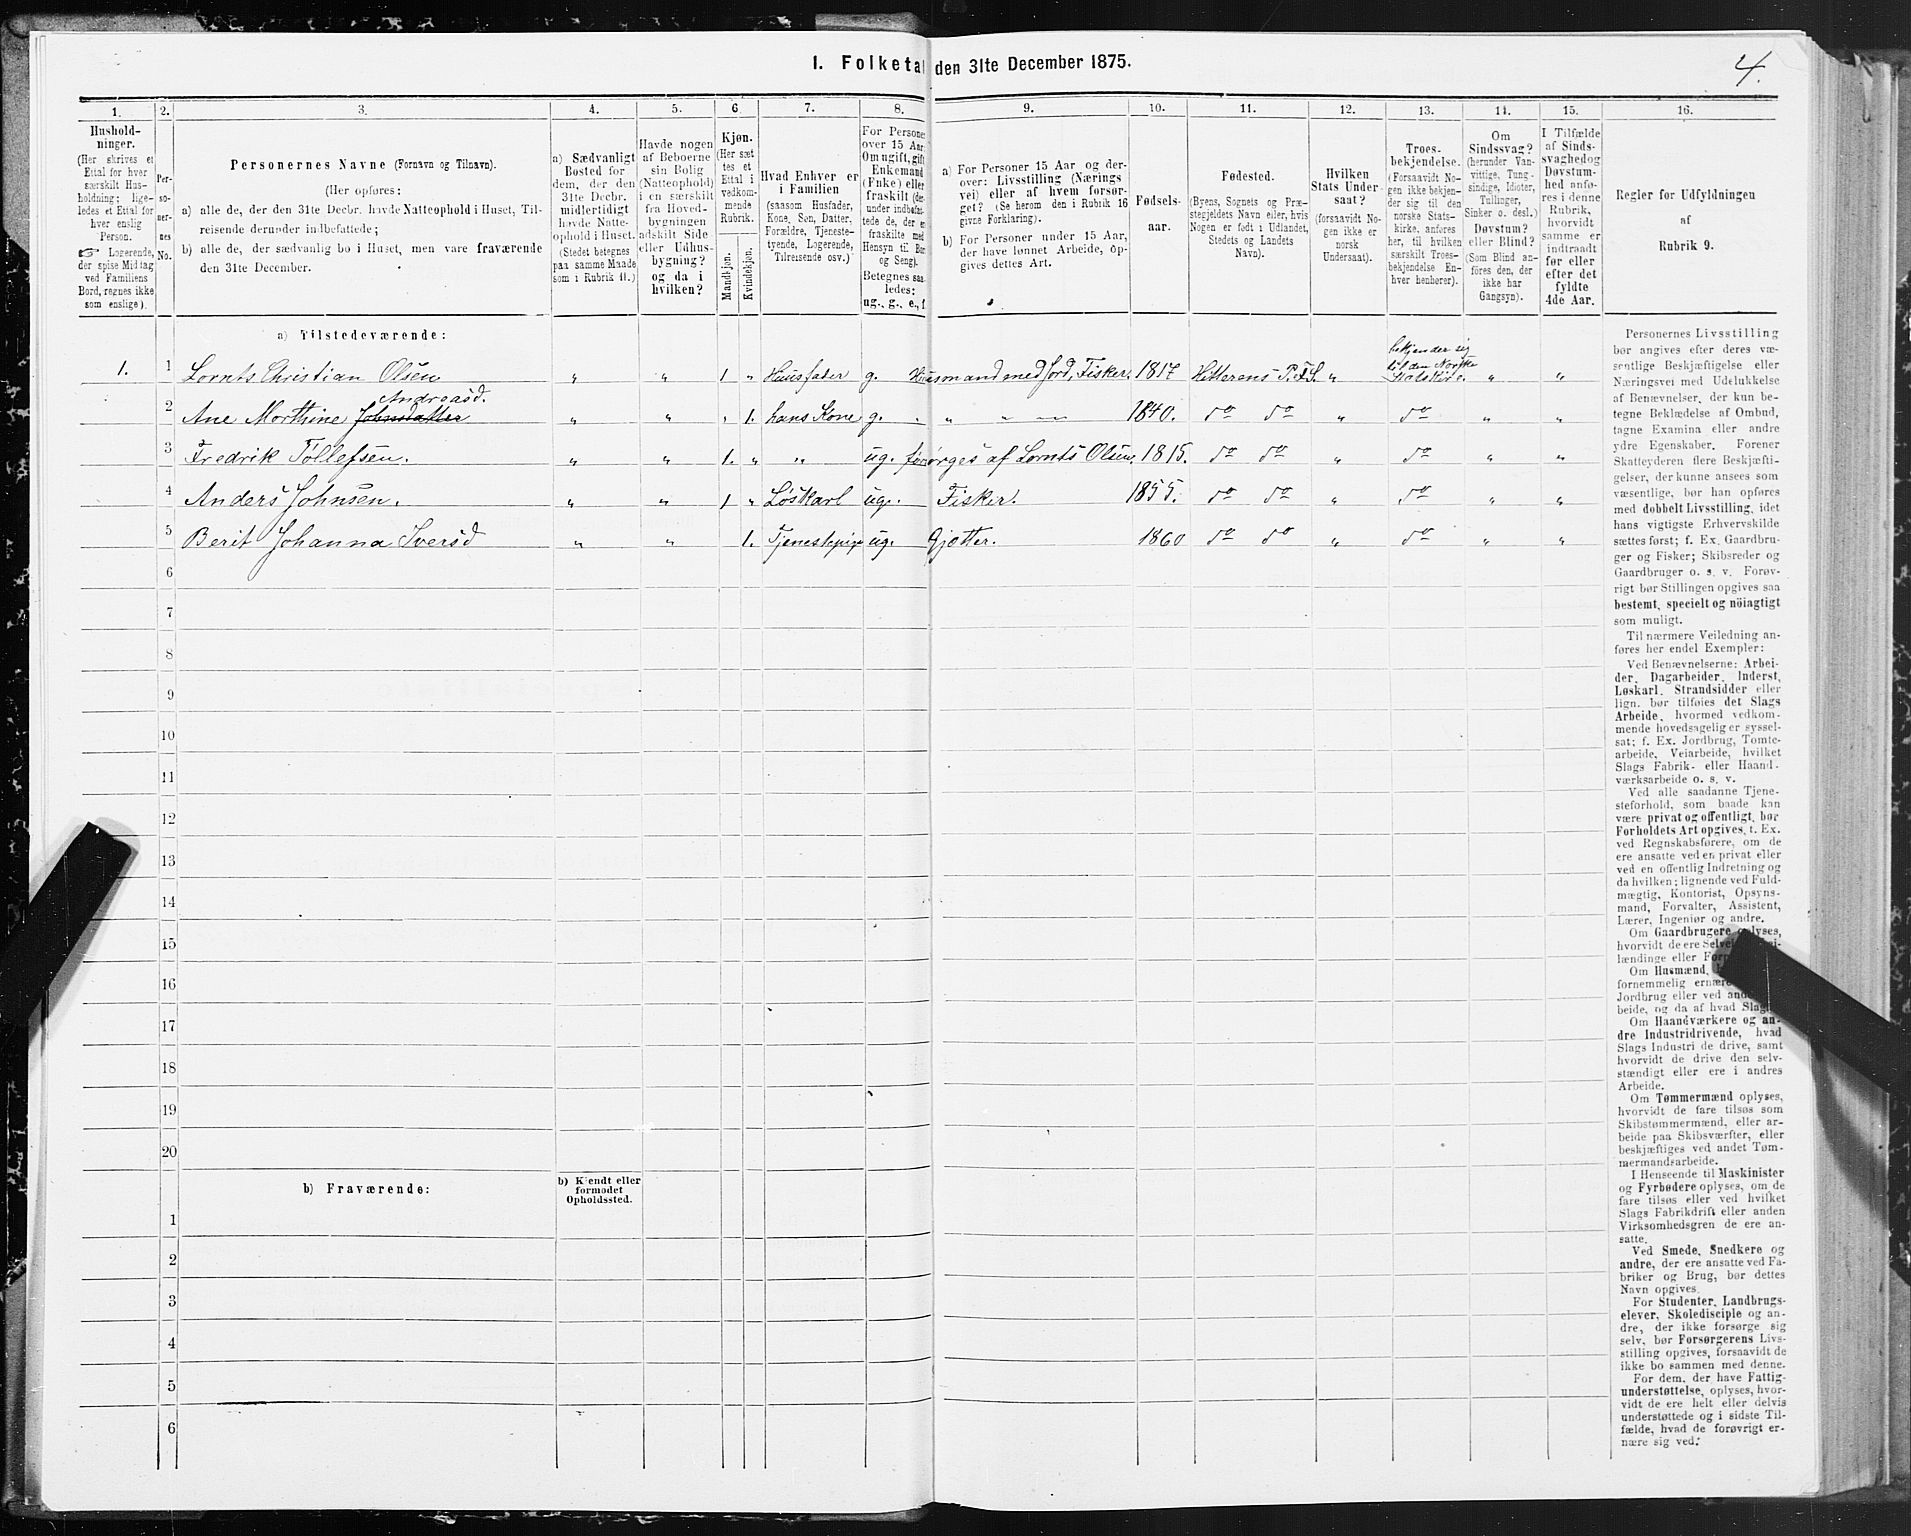 I. Folketal den 31te December 1875.
4.
1.
Hushold-
ninger.
(Her skrives et
Ettal for hver
særskilt Hus-
holdning; lige-
ledes et Ettal for
hver enslig
Person.
☞ Logerende,
der spise Middag
ved Familiens
Bord, regnes ikke
som enslige).
2.
Per-
so-
ner-
nes
No.
3.
Personernes Navne (Fornavn og Tilnavn).
(Her opføres:
a) alle de, der den 31te Decbr. havde Natteophold i Huset, Til-
reisende derunder indbefattede;
b) alle de, der sædvanlig bo i Huset, men vare fraværende
den 31te December.
4.
a) Sædvanligt
Bosted for
dem, der den
31te Decbr.
midlertidigt
havde Natte-
ophold i Huset.
(Stedet betegnes
paa samme Maade
som i Rubrik 11.)
5.
Havde nogen
af Beboerne
sin Bolig
(Natteophold)
i en særskilt
fra Hoved-
bygningen
adskilt Side
eller Udhus-
bygning?
og da i
hvilken?
6.
Kjøn.
(Her sæt
tes et
Ettal i
vedkom-
mende
Rubrik.
Mandkjøn.
Kvindekjøn.
7.
Hvad Enhver er
i Familien
(saasom Husfader,
Kone, Søn, Datter,
Forældre, Tjeneste-
tyende, Logerende,
Tilreisende osv.)
8.
For Persone
over 15 Aar
Om ugift, gift
Enkemand
(Enke) eller
fraskilt (der-
under indbefat-
tede de, der er
fraskilte med
Hensyn til Bor
og Seng).
Betegnes saa-
ledes:
ug., g., e., f
9.
a) For Personer 15 Aar og der-
over: Livsstilling (Nærings
vei) eller af hvem forsør-
get? (Se herom den i Rubrik 16
givne Forklaring).
b) For Personer under 15 Aar,
der have lønnet Arbeide, op-
gives dettes Art.
10.
Fødsels-
aar.
11.
Fødested.
(Byens, Sognets og Præ-
stegjeldets Navn eller, hvis
Nogen er født i Udlandet,
Stedets og Landets
Navn).
12.
Hvilken
Stats Under-
saat?
(forsaavidt No-
gen ikke er
norsk
Undersaat).
13.
Troes-
bekjendelse.
(Forsaavidt No-
gen ikke bekjen-
der sig til den
norske Stats-
kirke, anføres
her, til hvilken
særskilt Troes-
bekjendelse En-
hver henhører).
14.
Om
Sindssvag?
(herunder Van-
vittige, Tung-
sindige, Idioter,
Tullinger,
Sinker o. desl.)
Døvstum?
eller Blind?
(Som Blind an-
føres den, der
ikke har
Gangsyn).
15.
I Tilfælde
af Sinds-
svaghed og
Døvstum-
hed anfø-
res i denne
Rubrik,
hvorvidt
samme er
indtraadt
før eller
efter det
fyldte
4de Aar.
16.
Regler for Udfyldningen
af
Rubrik 9.
a) Tilstedeværende:
1. 1 Lornts Christian Olsen " " 1 " Huusfader g. Husmand med Jord, Fisker. 1817 Hitterens P. F. S. " bekjender sig til den Norske Statskirke. " "
2 Ane Morthine Johnsdatter Andreasd. " " " 1. hans Kone g. " " " — 1840. do do " do " "
3 Fredrik Tollefsen. " " 1. " " ug. forsørges af Lornts Olsen. 1815. do do " do " "
4 Anders Johnsen. " " 1 " Løskarl ug. Fisker. 1855. do do " do " "
5 Berit Johanna Iversd " " 1. Tjenestepige ug. Gjetter. 1860 do do " do " "
6
7
8
9
10
11
12
13
14
15
16
17
18
19
20
b) Fraværende:
b) Kjendt eller
formodet
Opholdssted.
1
2
3
4
5
6
Personernes Livsstilling
bør angives efter deres væ-
sentlige Beskjæftigelse eller
Næringsvei med Udelukkelse
af Benævnelser, der kun be-
tegne Beklædelse af Ombud,
tagne Examina eller andre
ydre Egenskaber. Forener
Skatteyderen flere Beskjæfti-
gelser, der kunne ansees som
væsentlige, bør han opføres
med dobbelt Livsstilling, idet
hans vigtigste Erhvervskilde
sættes først; f. Ex. Gaardbru-
ger og Fisker; Skibsreder og
Gaardbruger o. s. v. Forøv-
rigt bør Stillingen opgives saa
bestemt, specielt og nöiagtigt
som muligt.
Til nærmere Veiledning an-
føres her endel Exempler:
Ved Benævnelserne: Arbei-
der, Dagarbeider, Inderst,
Løskarl, Strandsidder eller
lign. bør tilføies det Slags
Arbeide, hvormed vedkom-
mende hovedsagelig er syssel-
sat; f. Ex. Jordbrug, Tomte-
arbeide, Veiarbeide, hvilket
Slags Fabrik- eller Haand-
værksarbeide o. s. v.
Ved alle saadanne Tjene-
steforhold, som baade kan
være privat og offentligt, bør
Forholdets Art opgives, t. Ex.
ved Regnskabsførere, om de
ere ansatte ved en privat eller
ved en offentlig Indretning og
da hvilken; lignende ved Fuld-
mægtig, Kontorist, Opsyns-
mand, Forvalter, Assistent,
Lærer, Ingeniør og andre.
Om Gaardbrugere oplyses,
hvorvidt de ere
lændinge eller
Om Husmænd,
fornemmelig
Jordbrug eller ved
beide, og da af hvad
Om Haandværkere og an-
dre Industridrivende, hvad
Slags Industri de drive, samt
hvorvidt de drive den selv-
stændigt eller ere i andres
Arbeide.
Om Tømmermænd oplyses,
hvorvidt de fare tilsøs som
Skibstømmermænd, eller ar-
beide paa Skibsværfter, eller
beskjæftiges ved andet Tøm-
mermandsarbeide.
I Henseende til Maskinister
og Fyrbødere oplyses, om de
fare tilsøs eller ved hvilket
Slags Fabrikdrift eller anden
Virksomhedsgren de ere an-
satte.
Ved Smede, Snedkere og
andre, der ere ansatte ved Fa-
briker og Brug, bør dettes
Navn opgives.
For Studenter, Landbrugs-
elever, Skoledisciple og an-
dre, der ikke forsørge sig
selv, bør Forsørgerens Livs-
stilling opgives, forsaavidt de
ikke bo sammen med denne.
For dem, der have Fattig-
understøttelse, oplyses, hvor-
vidt de ere helt eller delvis
understøttede og i sidste Til-
fælde, hvad de forøvrigt er-
nære sig ved.